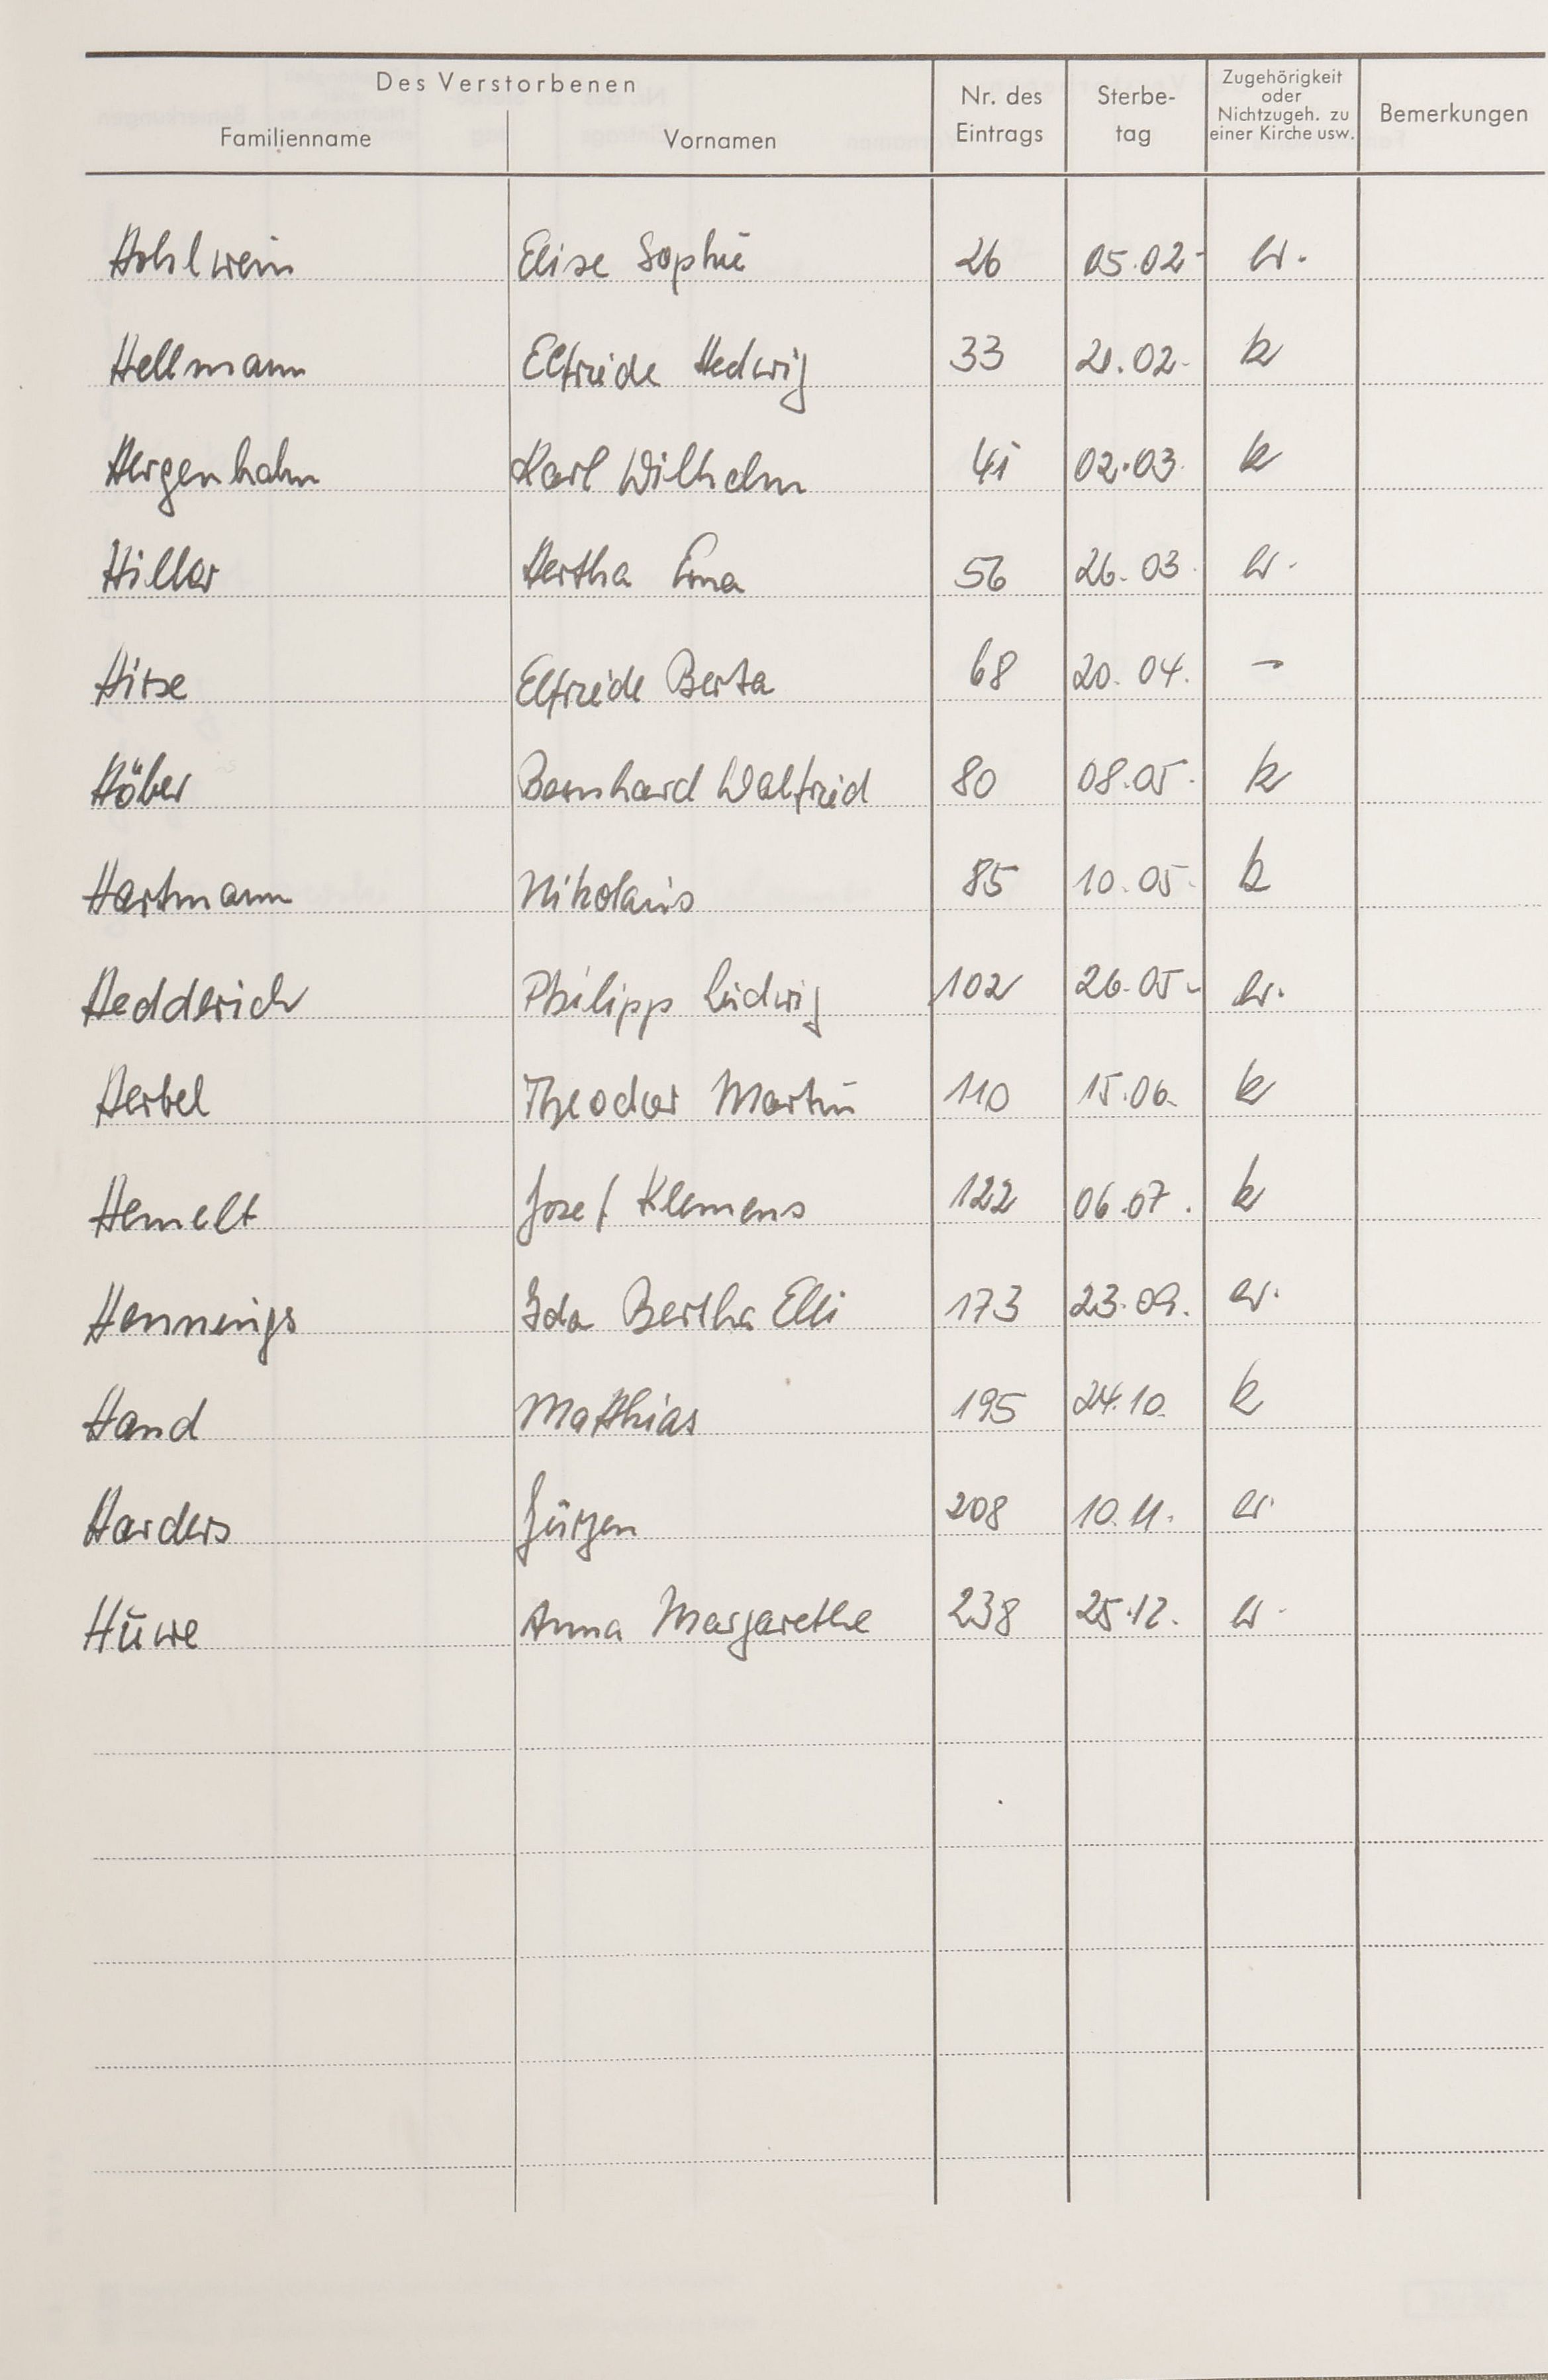 Des Verstorbenen
Familienname Vornamen Nr. des Eintrags Sterbe- tag Zugehörigkeit oder Nichtzugeh. zu einer Kirche usw. Bemerkungen
Hohlwein Elise Sophie 26 05.02. ev.
Hellmann Elfriede Hedwig 33 21.02. k
Hergenhahn Karl Wilhelm 41 02.03. k
Hiller Hertha Erna 56 26.03. ev.
Hirse Elfriede Berta 68 20.04. –
Höber Bernhard Walfried 80 08.05. k
Hartmann Nikolaus 85 10.05. k
Hedderich Philipp Ludwig 102 26.05. ev.
Herbel Theodor Martin 110 15.06. k
Hemelt Josef Klemens 122 06.07. k
Hennings Ida Bertha Elli 173 23.09. ev.
Hand Matthias 195 24.10. k
Harders Jürgen 208 10.11. ev
Hüwe Anna Margarethe 238 25.12. ev.